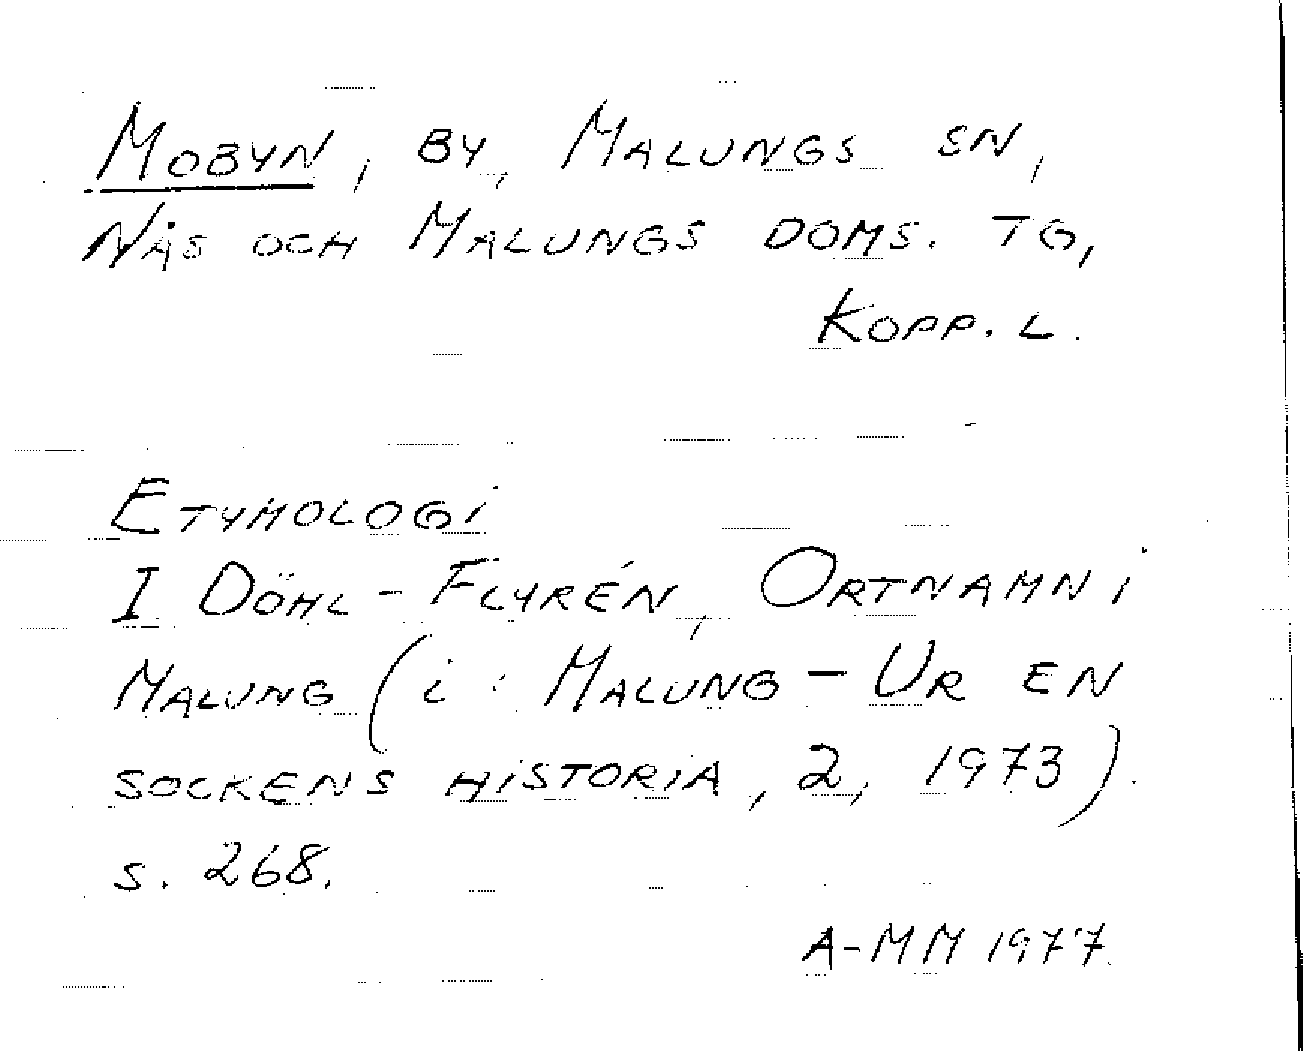 MOBYN, BY, MALUNGS SN,
NÅS OCH MALUNGS DOMS. TG,
KOPP. L.
ETYMOLOGI
I DÖHL-FLYRÉN, ORTNAMN I
MALUNG (i: MALUNG - UR EN
SOCKENS HISTORIA, 2, 1973).
S. 268.
A-MM 1977.